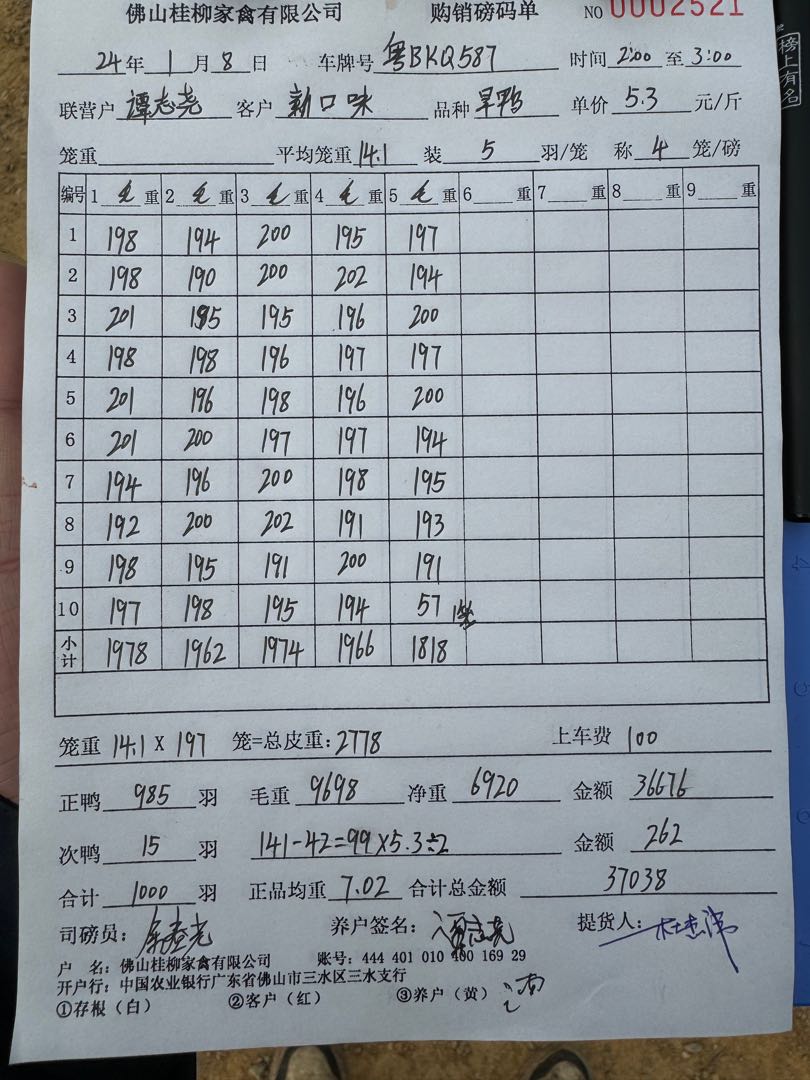 佛山桂柳家禽有限公司 购销磅码单 NO 0002521
24年1月8日 车牌号 粤BKQ587 时间 2:00 至 3:00
联营户 谭志尧 客户 新口味 品种 旱鸭 单价 5.3 元/斤
笼重 平均笼重 14.1 装 5 羽/笼 称 4 笼/磅
编号 1 毛 重 2 毛 重 3 毛 重 4 毛 重 5 毛 重 6 重 7 重 8 重 9 重
1 198 194 200 195 197
2 198 190 200 202 194
3 201 195 195 196 200
4 198 198 196 197 197
5 201 196 198 196 200
6 201 200 197 197 194
7 194 196 200 198 195
8 192 200 202 191 193
9 198 195 191 200 191
10 197 198 195 194 57
小计 1978 1962 1974 1966 1818
笼重 14.1 X 197 笼=总皮重:2778 上车费 100
正鸭 985 羽 毛重 9698 净重 6920 金额 36676
次鸭 15 羽 141-42=99×5.3÷2 金额 262
合计 1000 羽 正品均重 7.02 合计总金额 37038
司磅员: 养户签名: 谭志尧 提货人: 杜杰伟
户 名:佛山桂柳家禽有限公司 账号:444 401 010 400 169 29
开户行:中国农业银行广东省佛山市三水区三水支行
①存根(白) ②客户(红) ③养户(黄)
榜上有名